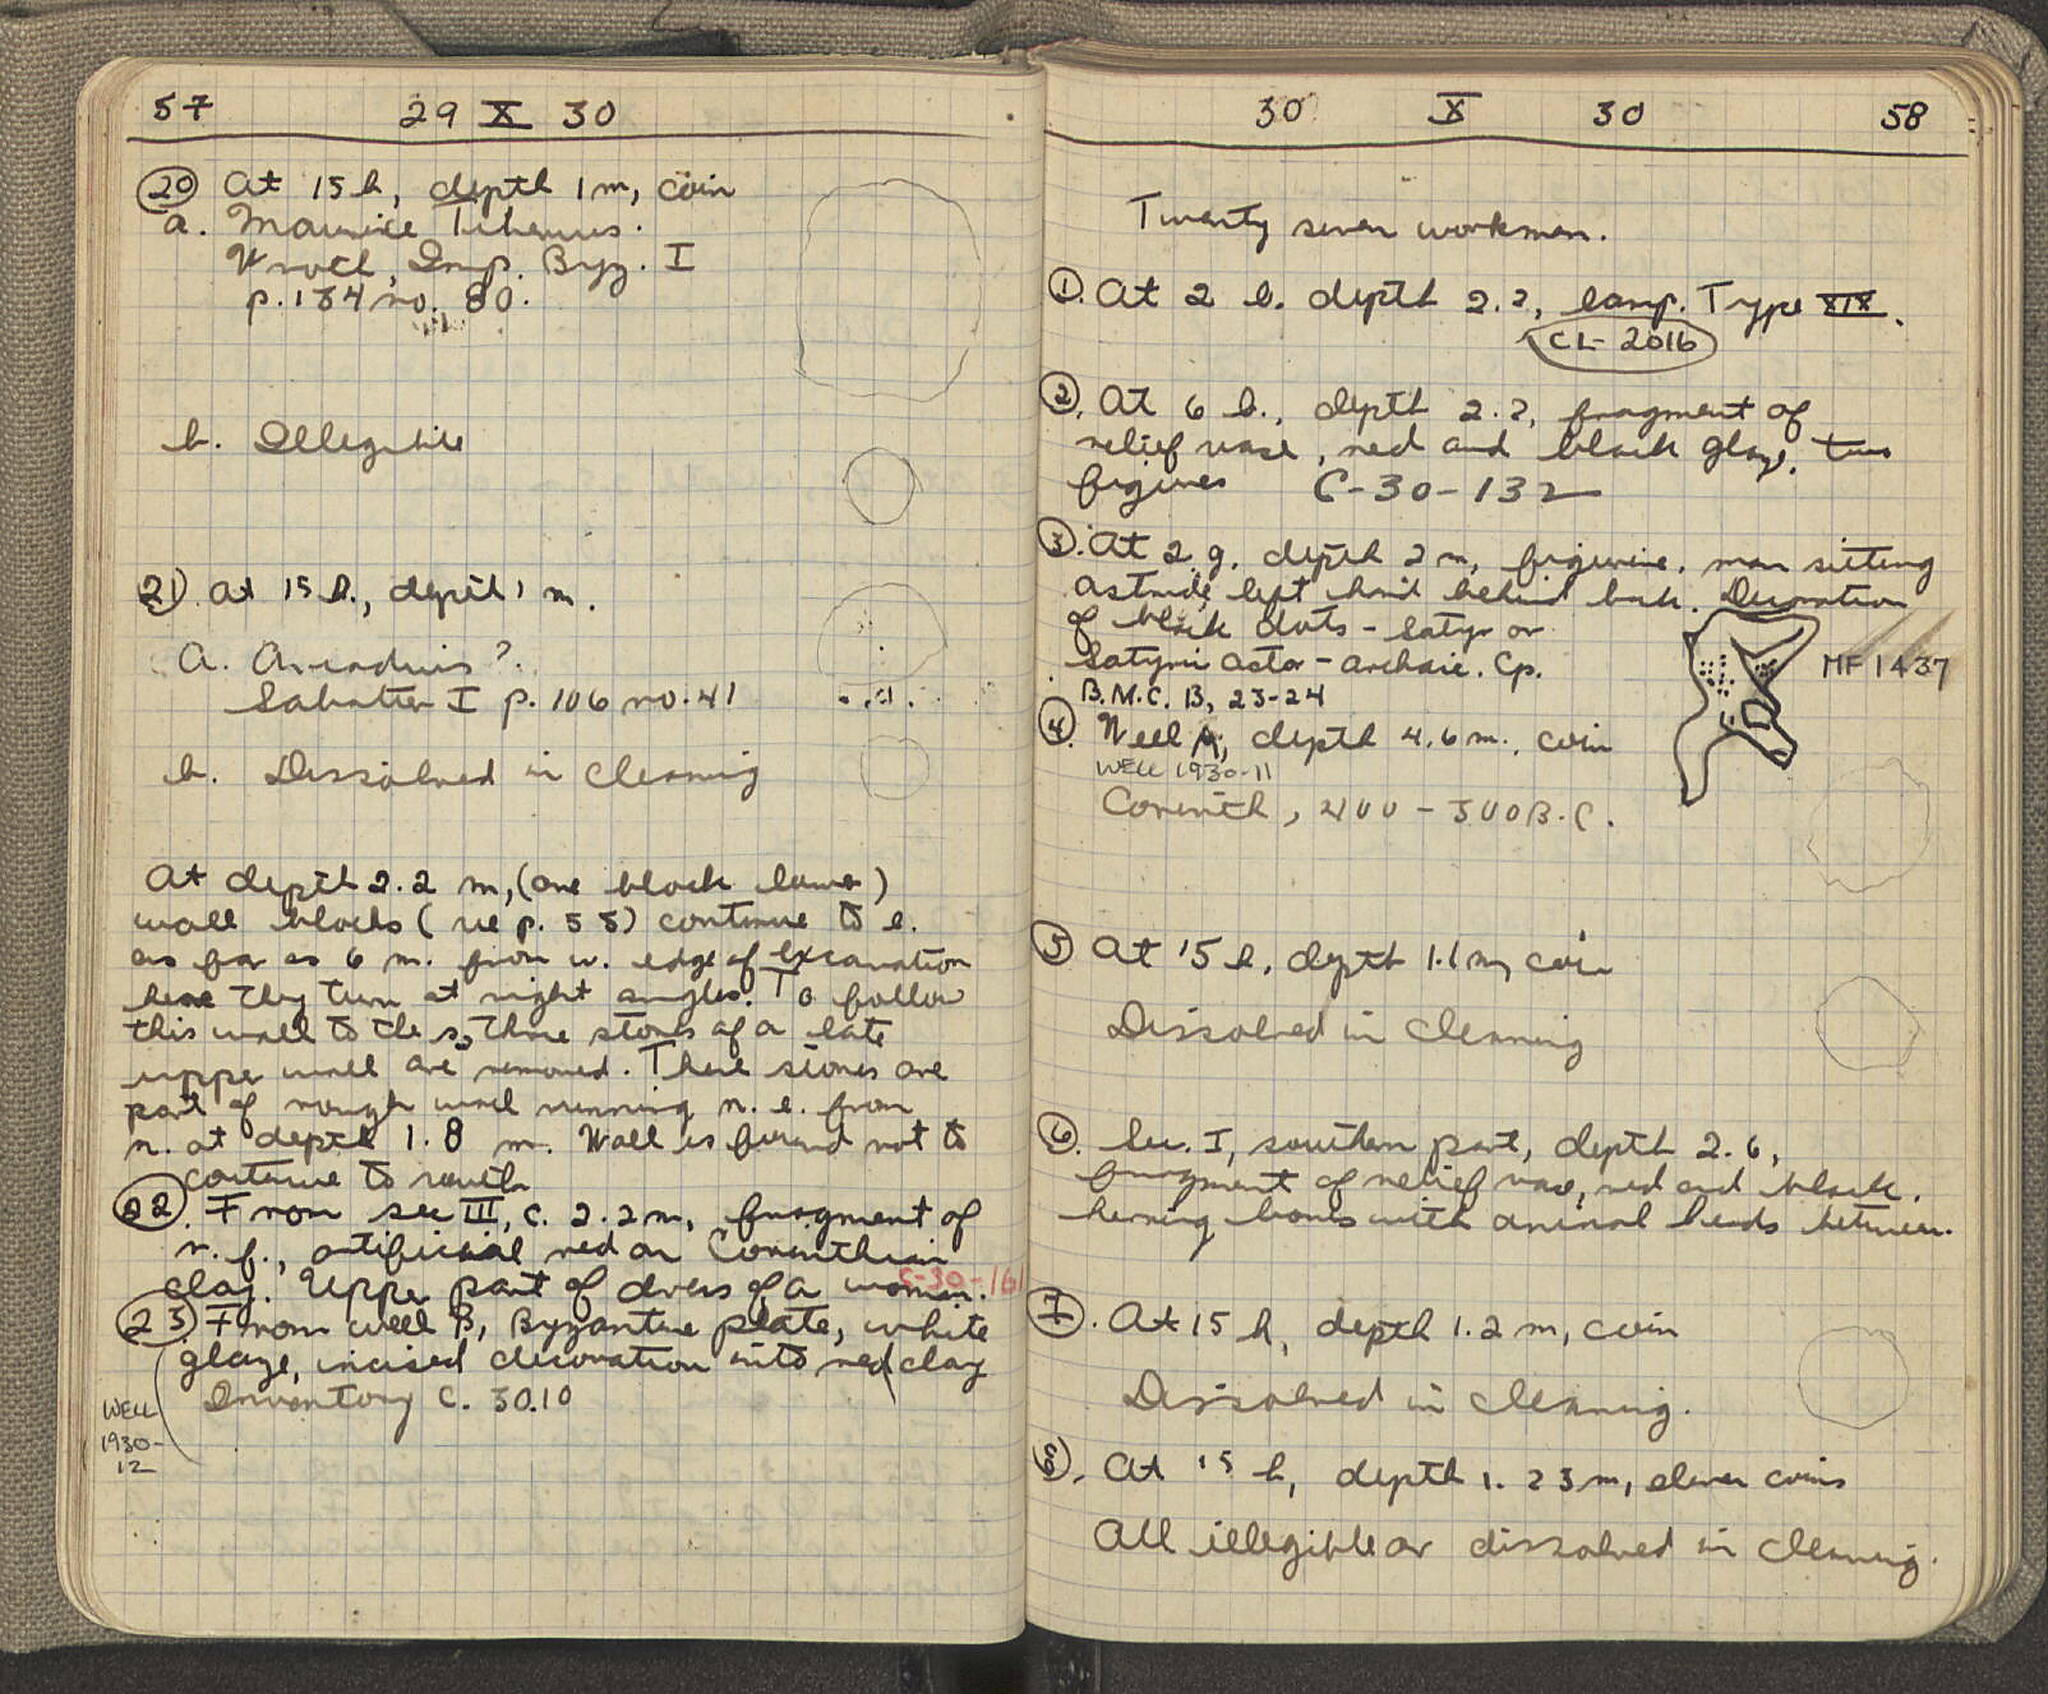 57 29 X 30
20 At 15 h, depth 1 m, coin
a. Maurice Tiberius.
Wroth, Imp. Byz. I
p. 184 no. 80.
b. Illegible
21. At 15 h., depth 1 m.
a. Arcadius?
Sabatier I p. 106 no. 41
b. Dissolved in cleaning
At depth 2.2 m, (one block lower)
wall blocks ( p. 55) continue to e.
as far as 6 m. from w. edge of excavation
here they turn at right angles. To follow
this wall to the s, three stones of a late
upper wall are removed. These stones are
part of rough wall running n. e. from
n. at depth 1.8 m. Wall is found not to
continue to south.
22. From sec III, c. 2.2 m, fragment of
r. f., artificial red on Corinthian
clay. Upper part of dress of a woman.
C-30-161
23 From well B, Byzantine plate, white
glaze, incised decoration into red clay
Inventory C. 30.10
WELL
1930-
12
30 X 30 58
Twenty seven workmen.
1. At 2 h. depth 2.2, lamp. Type XIX.
CL-2016
2. At 6 h., depth 2.2, fragment of
relief vase, red and black glaze, two
figures C-30-132
3. At 2 g, depth 2 m, figurine, man sitting
astride, left hand behind back. Decoration
of black dots - Satyr or
Satyric actor - archaic. Cp.
B.M.C. B, 23-24
MF 1437
4. Well A, depth 4.6 m., coin
WELL 1930-11
Corinth, 400 - 300 B.C.
5 At 15 h, depth 1.1 m, coin
Dissolved in cleaning
6. Sec. I, southern part, depth 2.6,
fragment of relief vase, red and black.
herring bones with animal heads between.
7. At 15 h, depth 1.2 m, coin
Dissolved in cleaning.
8. At 15 h, depth 1.23 m, eleven coins
All illegible or dissolved in cleaning.